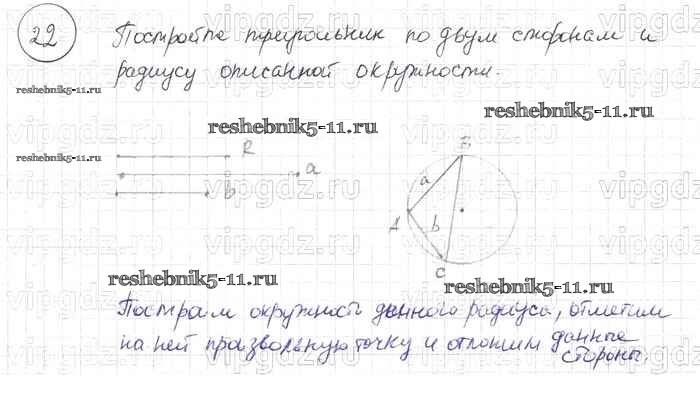 22
Постройте треугольник по двум сторонам и
радиусу описанной окружности.
reshebnik5-11.ru
reshebnik5-11.ru
reshebnik5-11.ru
reshebnik5-11.ru
R
a
b
B
a
A
b
C
reshebnik5-11.ru
reshebnik5-11.ru
Построим окружность данного радиуса, отметим
на ней произвольную точку и отложим данные
стороны.
vipgdz.ru